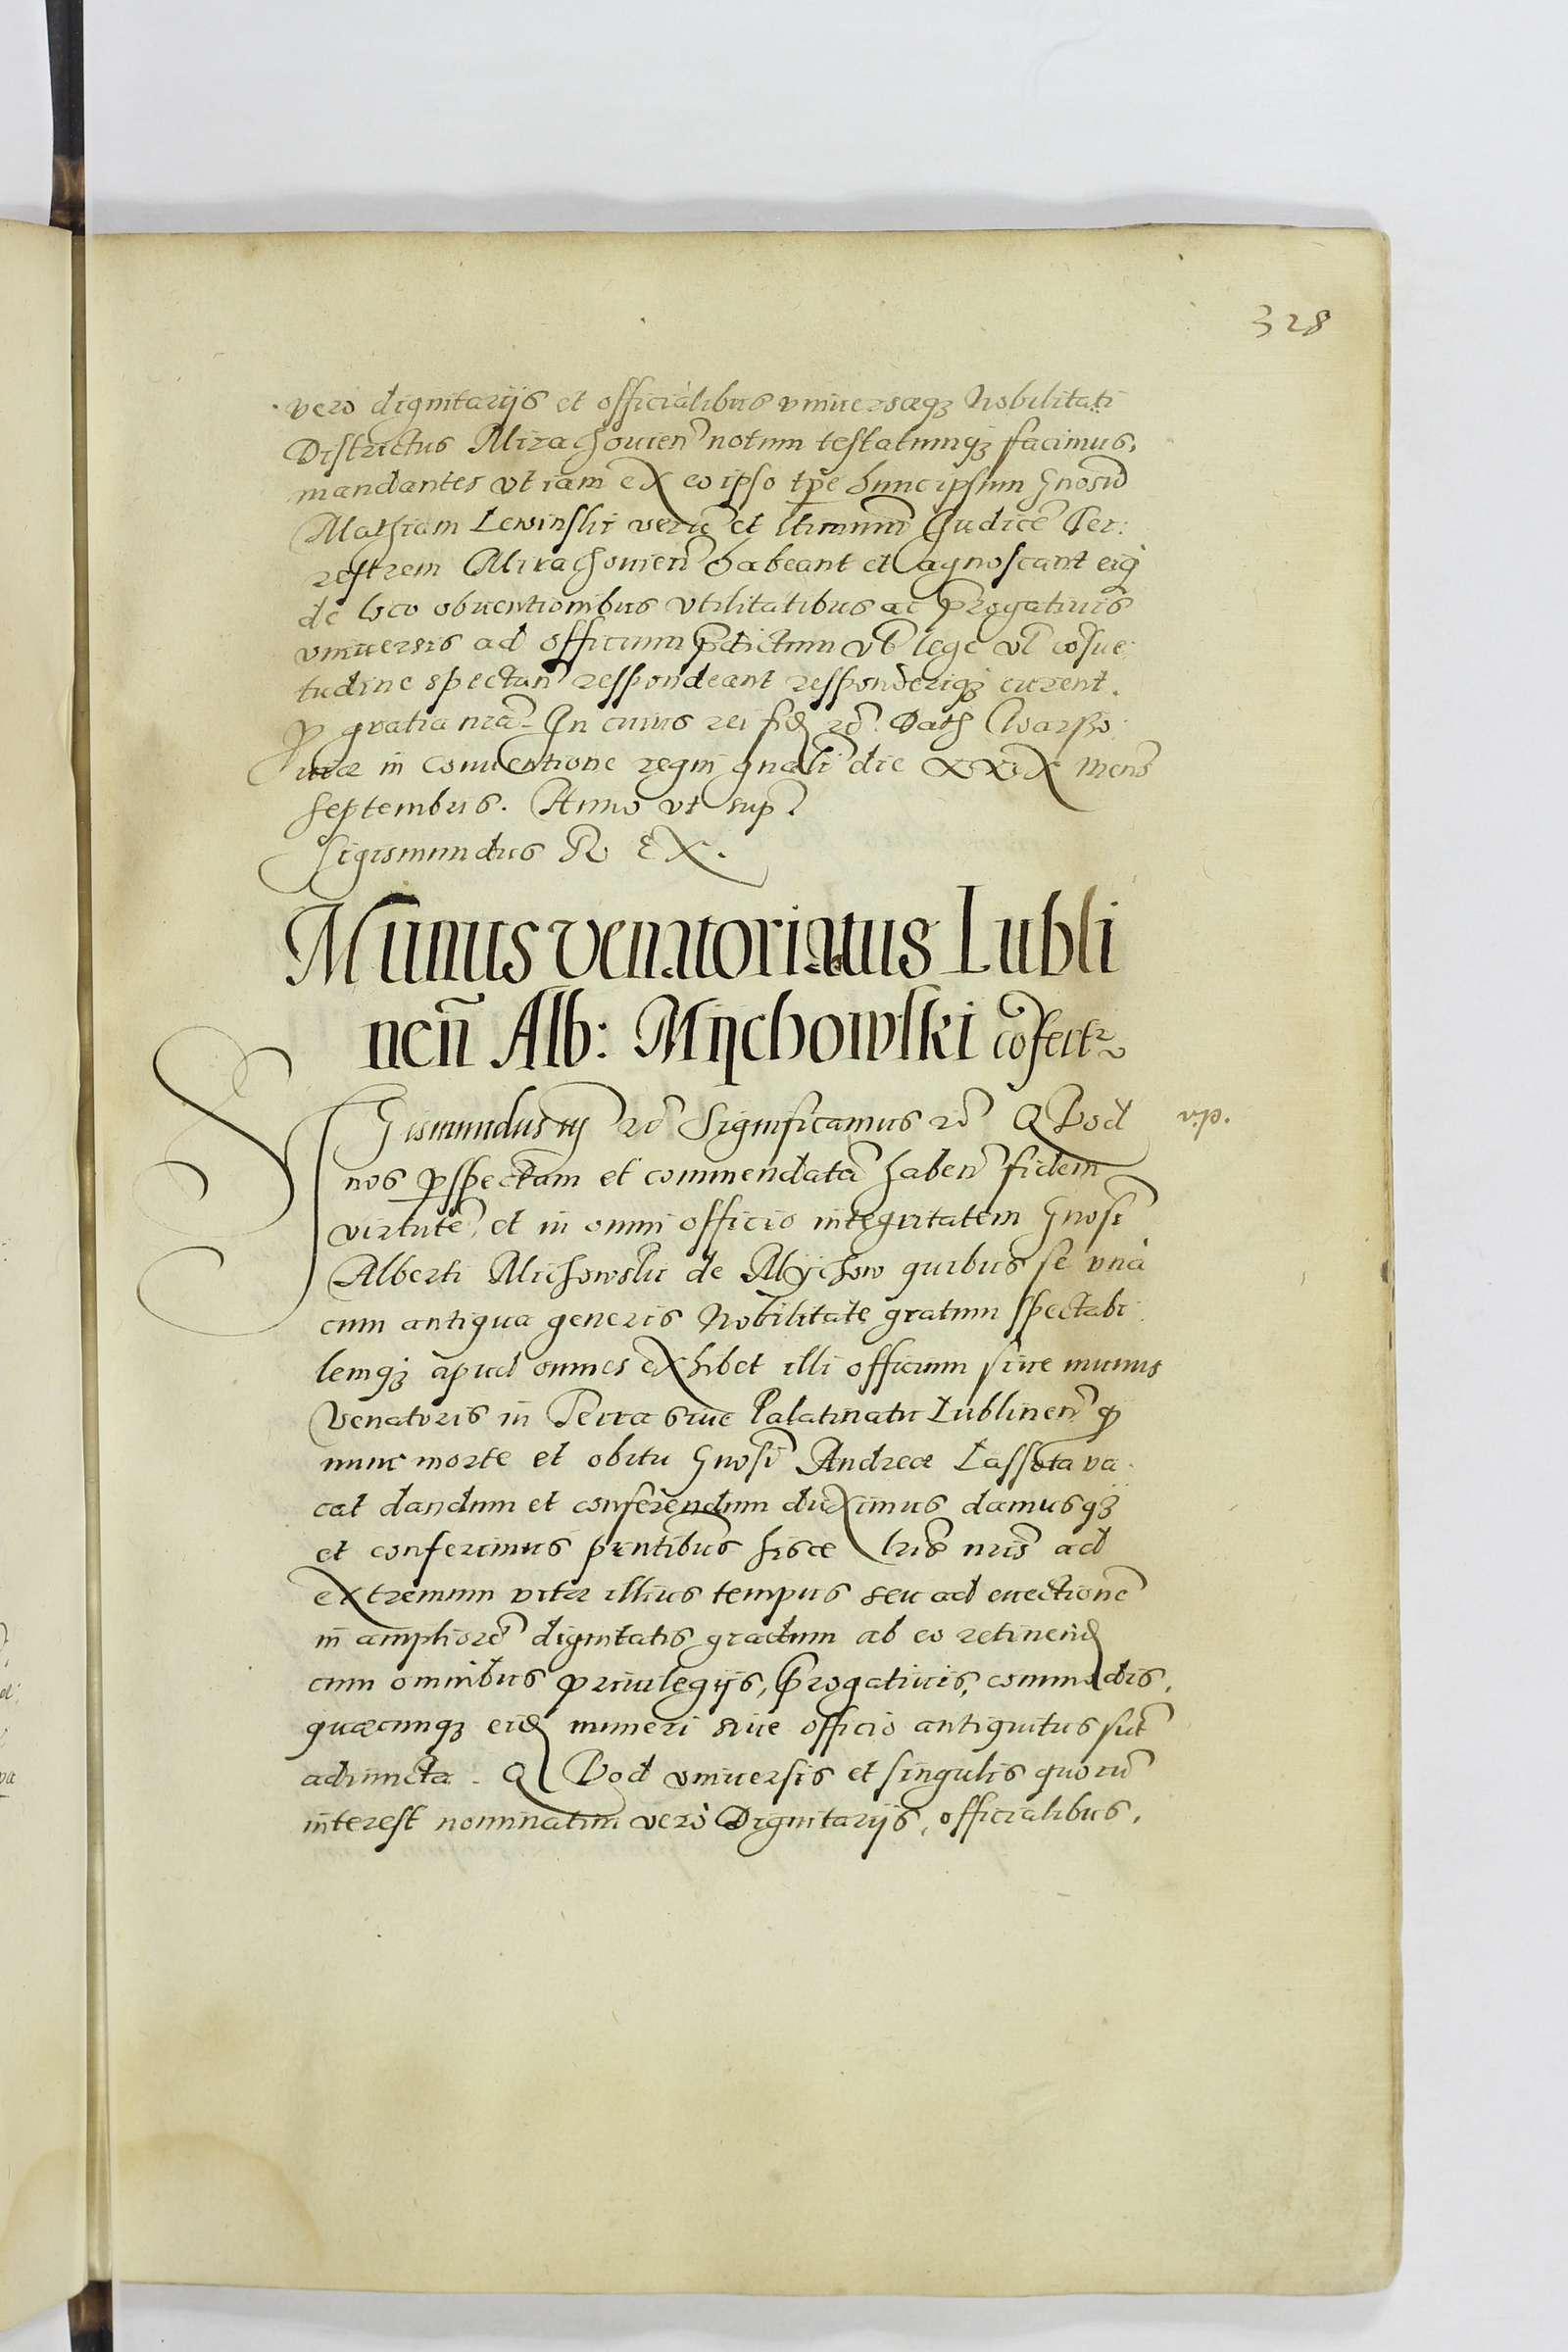 328
vero dignitarijs et officialibus vniuersaeq3 Nobilitati
Districtus Mirachouien̄ notum testatumq3 facimus,
mandantes vt iam ex eo ipso tp̄e hunc ipsum Gnosū
Mathiam Lewinski verū et ltimum Iudicē Ter:
restrem Mirachouien̄ habeant et agnoscant eiq3
de loco obuentionibus vtilitatibus ac p̄rogatiuis
vniuersis ad officium p̄dictum vl lege vl cōsue:
tudine spectan̄ respondeant responderiq3 curent.
p gratia nrā. In cuius rei fid rc̄. Dat Warsso:
uiæ in conuentione regni gnali die XXIX mens̄
Septembris. Anno vt sup
Sigismundus R EX.
Munus venatoriatus Lubli
neñ Alb: Mijchowski cōfertr
Sigismundus iij rc̄ Significamus rc̄ QVod
v.p.
nos perspectam et commendatā haben̄ fidem
virtutē, et in omni officio integritatem Gnosi
Alberti Michowski de Mijchow quibus se vnà
cum antiqua generis Nobilitate gratum spectabi:
lemq3 apud omnes exhibet illi officium siue munus
Venatoris in Terra siue Palatinatu Lublinen̄ q
nunc morte et obitu Gnosi Andreæ Lassota va:
cat dandum et conferendum duximus damusq3
et conferimus pn̄tibus hisce lris nris ad
extremum vitæ illius tempus seu ad euectionē
in ampliorē dignitatis gradum ab eo retinend
cum omnibus priuilegijs, p̄rogatiuis, commodis,
quæcunq3 eid muneri siue officio antiquitus sūt
adiuncta. QVod vniuersis et singulis quorū
interest nominatim verò Dignitarijs, officialibus,